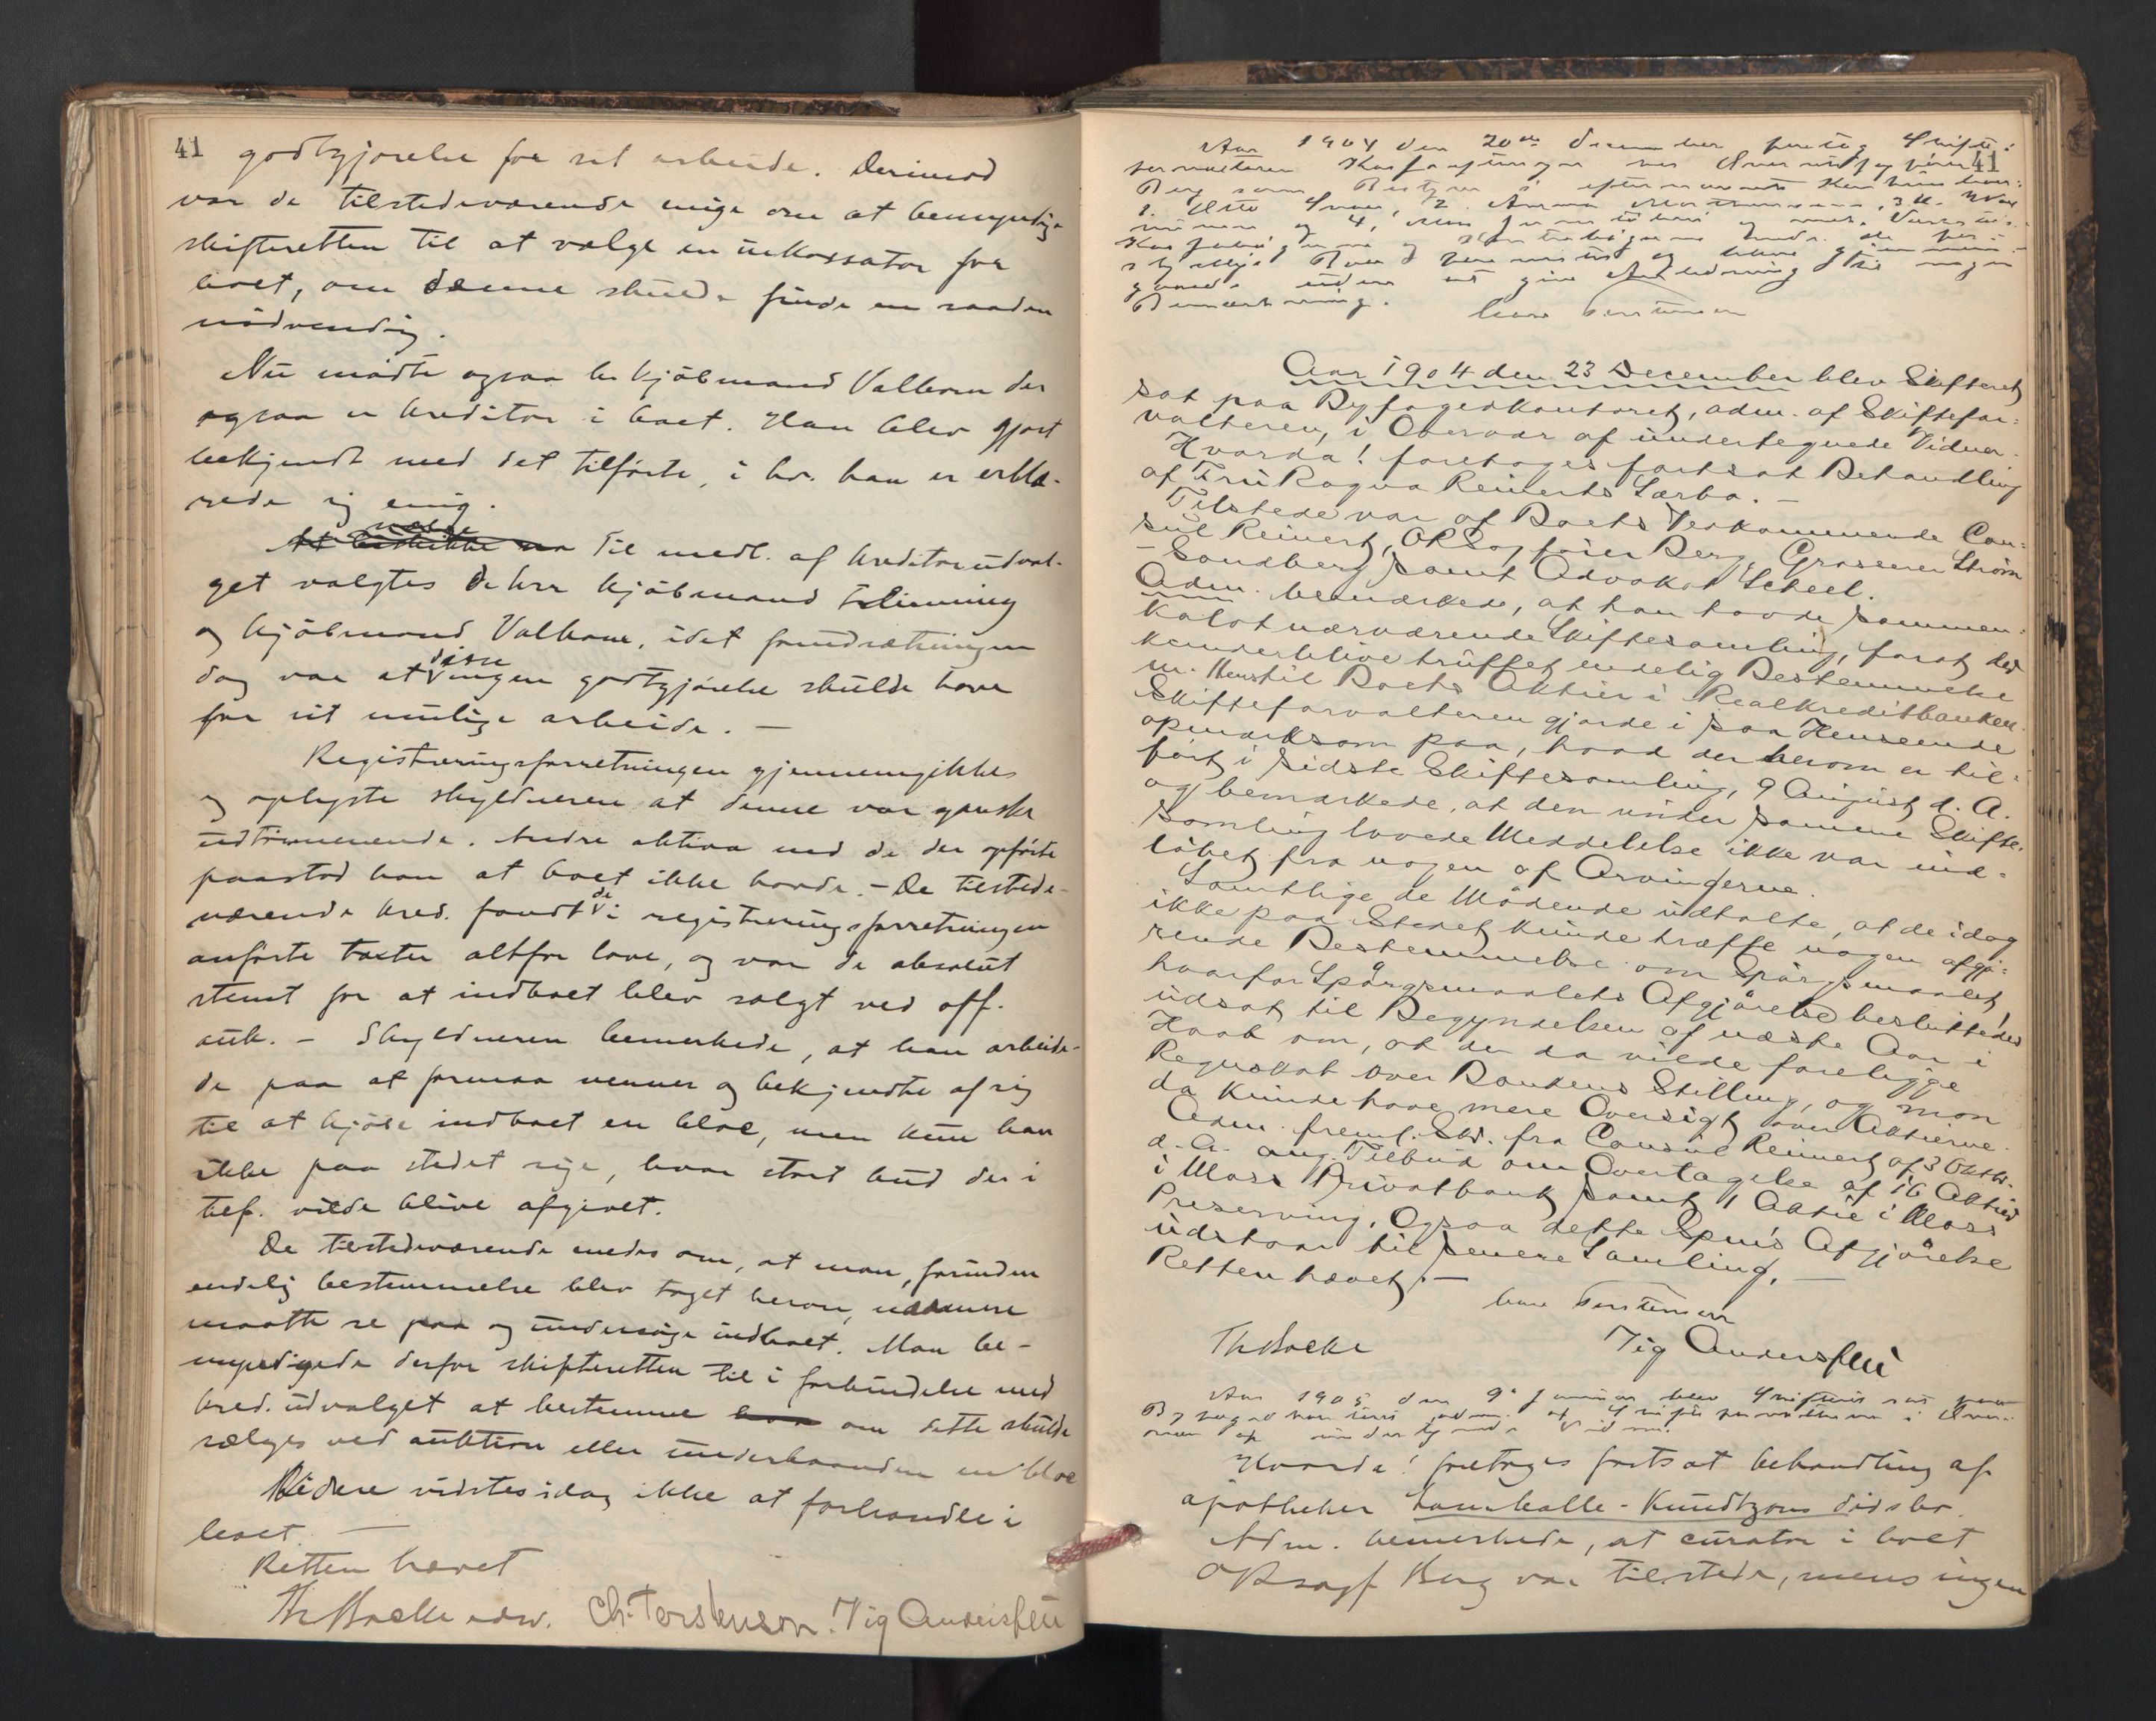 41
godtgjørelse for sit arbeide. Derimod
var de tilstedeværende enige om at bemyndige
skifteretten til at vælge en inkassator for
boet, om denne skulde finde en saadan
nødvendig.
Nu mødte ogsaa hr kjøbmand Valborn der
ogsaa er kreditor i boet. Han blev gjort
bekjendt med det tilførte, i hv. han er erklæ-
rede sig enig.
Til medl. af kreditorudval-
get valgtes d'herr kjøbmand
og kjøbmand Valborn, idet forudsætningen
dog var at disse ingen godtgjørelse skulde have
for sit mulige arbeide. —
Registreringsforretningen gjennemgikkes
og oplyste skyldneren at denne var ganske
udtømmende. Andre aktiva end de der opførte
paastod han at boet ikke havde. – De tilstede-
værende kred. fandt de i registreringsforretningen
anførte taxter altfor lave, og var de absolut
stemt for at indboet blev solgt ved off.
auk. – Skyldneren bemerkede, at han arbeide-
de paa at formaa venner og bekjendte af sig
til at kjøbe indboet en bloc, men kun han
ikke paa stedet sige, hvor stort bud der i
tilf. vilde blive afgivet.
De tilstedeværende enedes om, at man, forinden
endelig bestemmelse blev taget herom, nærmere
maatte se paa og undersøge indboet. Man be-
myndigede derfor skifteretten til i forbindelse med
kred. udvalget at bestemme om dette skulde
sælges ved auktion eller underhaanden en bloc
Videre vidstes idag ikke at forhandle i
boet. —
Retten hævet
Th Bache edsv. Ch. Torstenson. Vig Andersen
41
Aar 1904 den 20de december foretog Skifte-
forvalteren Kasseeftersyn
Berg som Bestyrer i efternævnte
1.
og 4,
og
og
uden at give Anledning til nogen
Bemærkning.
Aar 1904 den 23 December blev Skifteret
sat paa Byfogedkontoret, adm. af Skiftefor-
valteren, i Overvær af undertegnede Vidner.
Hvorda! foretoges fortsat Behandling
af Fru Ragna Reinerts Særbo. –
Tilstede var af Boets Vedkommende Con-
sul Reinert, ORSagfører Berg, Grosserer Strøm
– Sandberg samt Advokat Scheel.
Adm. bemærkede, at han havde sammen-
kaldt nærværende Skiftesamling, forat der
kunde blive truffet endelig Bestemmelse
m. Hens. til Boets Aktier i Realkreditbanken.
Skifteforvalteren gjorde i saa Henseende
opmærksom paa, hvad der herom er til-
ført i sidste Skiftesamling, 9 August d. A.
og bemærkede, at den under samme Skifte-
samling lovede Meddelelse ikke var ind-
løbet fra nogen af Arvingerne.
Samtlige de Mødende udtalte, at de idag
ikke paa Stedet kunde træffe nogen afgjø-
rende Bestemmelse om Spørgsmaalet,
hvorfor Spørgsmaalets Afgjørelse besluttedes
udsat til Begyndelsen af næste Aar i
Haab om, at der da vilde foreligge
Regnskab over Bankens Stilling, og man
da kunde have mere Oversigt over Aktierne.
Adm. freml. Skr. fra Consul Reinert af 3 Oktbr.
d. A. ang. Tilbud om Overtagelse af 16 Aktier
i Moss Privatbank samt 1 Aktie i Moss
Preserving. Ogsaa dette Spm's Afgjørelse
udstaar til senere Samling. —
Retten hævet. —
Th Bache Vig Andersen
Aar 1905 den 9de Januar blev Skifteret sat paa
Byfogedkontoret adm. af Skifteforvalteren i Over-
vær af undertegnede Vidner.
Hvorda! foretoges fortsat behandling af
apotheker Knudtzons dødsbo.
Adm. bemerkede, at curator i boet
ORsagf Berg var tilstede, mens ingen